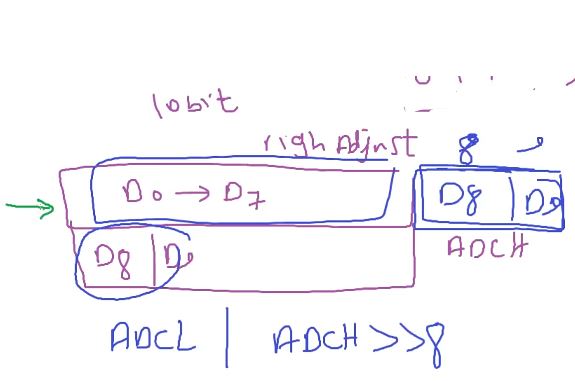 10bit
righ Adjust 8
D0 → D7 D8 | D9
ADCH
D8 | D9
ADCL | ADCH >> 8